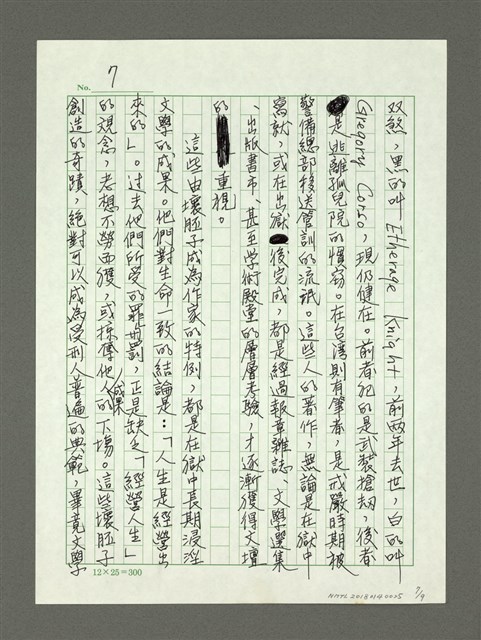 No. 7
双煞，黑的叫 Etherage Knight，前兩年去世，白的叫
Gregory Corso，現仍健在。前者犯的是武裝搶劫，後者
是逃離孤兒院的慣窃。在台湾則有筆者，是戒嚴時期被
警備總部移送管訓的流氓。這些人的著作，無論是在獄中
寫就，或在出獄後完成，都是經過報章雜誌、文學選集
、出版書市、甚至学術殿堂的層層考驗，才逐漸獲得文壇
的重視。
這些由壞胚子成為作家的特例，都是在獄中長期浸淫
文學的成果。他們對生命一致的結論是：「人生是經營出
來的」。过去他們所受的罪與罰，正是缺乏「經營人生」
的观念，老想不勞而獲，或掠奪他人成果的下場。這些壞胚子
創造的奇蹟，絕對可以成為受刑人普遍的典範，畢竟文學
12×25=300
NMTL20180140025
7/9